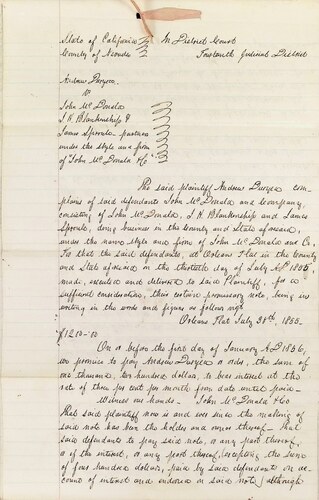 State of California In District Court
County of Nevada Fourteenth Judicial District
Andrew Duryea
v
John McDonald
J. H. Blankenship &
James Sproule - partners
under the style and firm
of John McDonald & Co
The said plaintiff Andrew Duryea com-
plains of said defendants John McDonald and Company,
consisting of John McDonald, J. H. Blankenship and James
Sproule, doing business in the County and State aforesaid,
under the name style and firm of John McDonald and Co.
For that the said defendants, at Orleans Flat in the County
and State aforesaid on the thirtieth day of July A.D. 1855,
made, executed and delivered to said Plaintiff, for a
sufficient consideration, their certain promissory note, being in
writing in the words and figures as follows viz
Orleans Flat July 30th, 1855.
$1210-00
On or before the first day of January A.D 1856,
we promise to pay Andrew Duryea or order, the sum of
one thousand, two hundred dollars, to bear interest at the
rate of three per cent per month from date until paid-
Witness our hands - John McDonald & Co
That said plaintiff now is and ever since the making of
said note has been the holder and owner thereof - That
said defendants to pay said note, or any part thereof,
or of the interest, or any part thereof, excepting the sum
of four hundred dollars, paid by said defendants on ac-
count of interest and endorsed on said note, (although